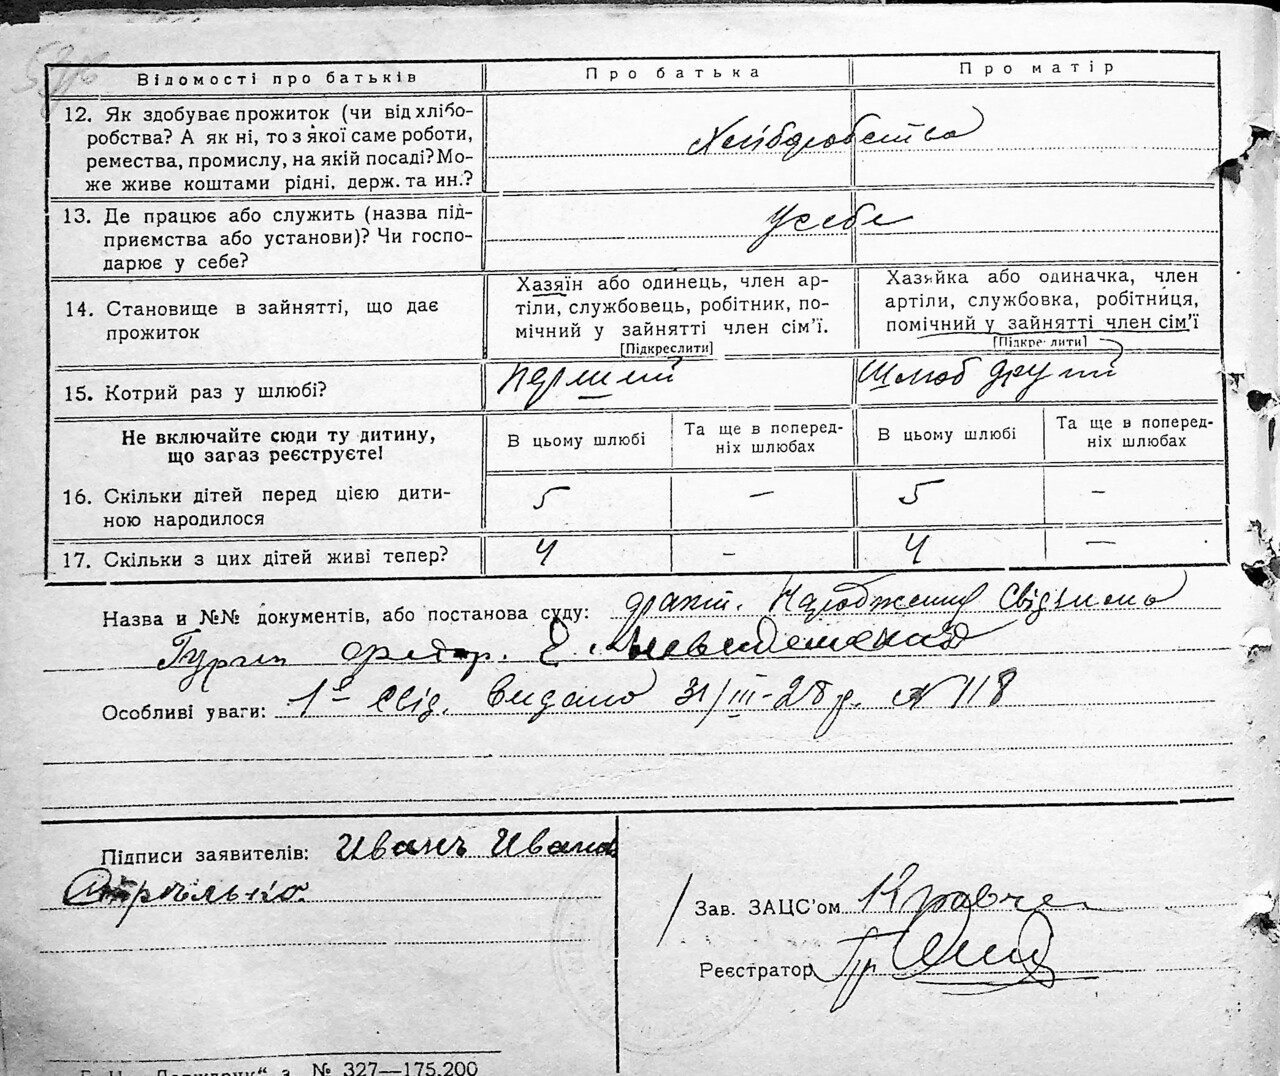 Відомості про батьків
Про батька
Про матір
12. Як здобуває прожиток (чи від хлібо-
робства? А як ні, то з якої саме роботи,
ремества, промислу, на якій посаді? Мо-
же живе коштами рідні, держ. та ин.?
Хліборобство
13. Де працює або служить (назва під-
приємства або установи)? Чи госпо-
дарює у себе?
У себе
14. Становище в зайнятті, що дає
прожиток
Хазяїн або одинець, член ар-
тіли, службовець, робітник, по-
мічний у зайнятті член сім’ї.
[Підкреслити]
Хазяйка або одиначка, член
артіли, службовка, робітниця,
помічний у зайнятті член сім’ї
[Підкреслити]
15. Котрий раз у шлюбі?
Перший
Шлюб другий
Не включайте сюди ту дитину,
що зараз реєструєте!
В цьому шлюбі
Та ще в поперед-
ніх шлюбах
В цьому шлюбі
Та ще в поперед-
ніх шлюбах
16. Скільки дітей перед цією дити-
ною народилося
5 — 5 —
17. Скільки з цих дітей живі тепер?
4 — 4 —
Назва и №№ документів, або постанова суду: Народження
Особливі уваги: 1е свід. видано 31/III-28 р. № 118
Підписи заявителів: Иванъ
Зав. ЗАЦС’ом
Реєстратор
з. № 327—175.200